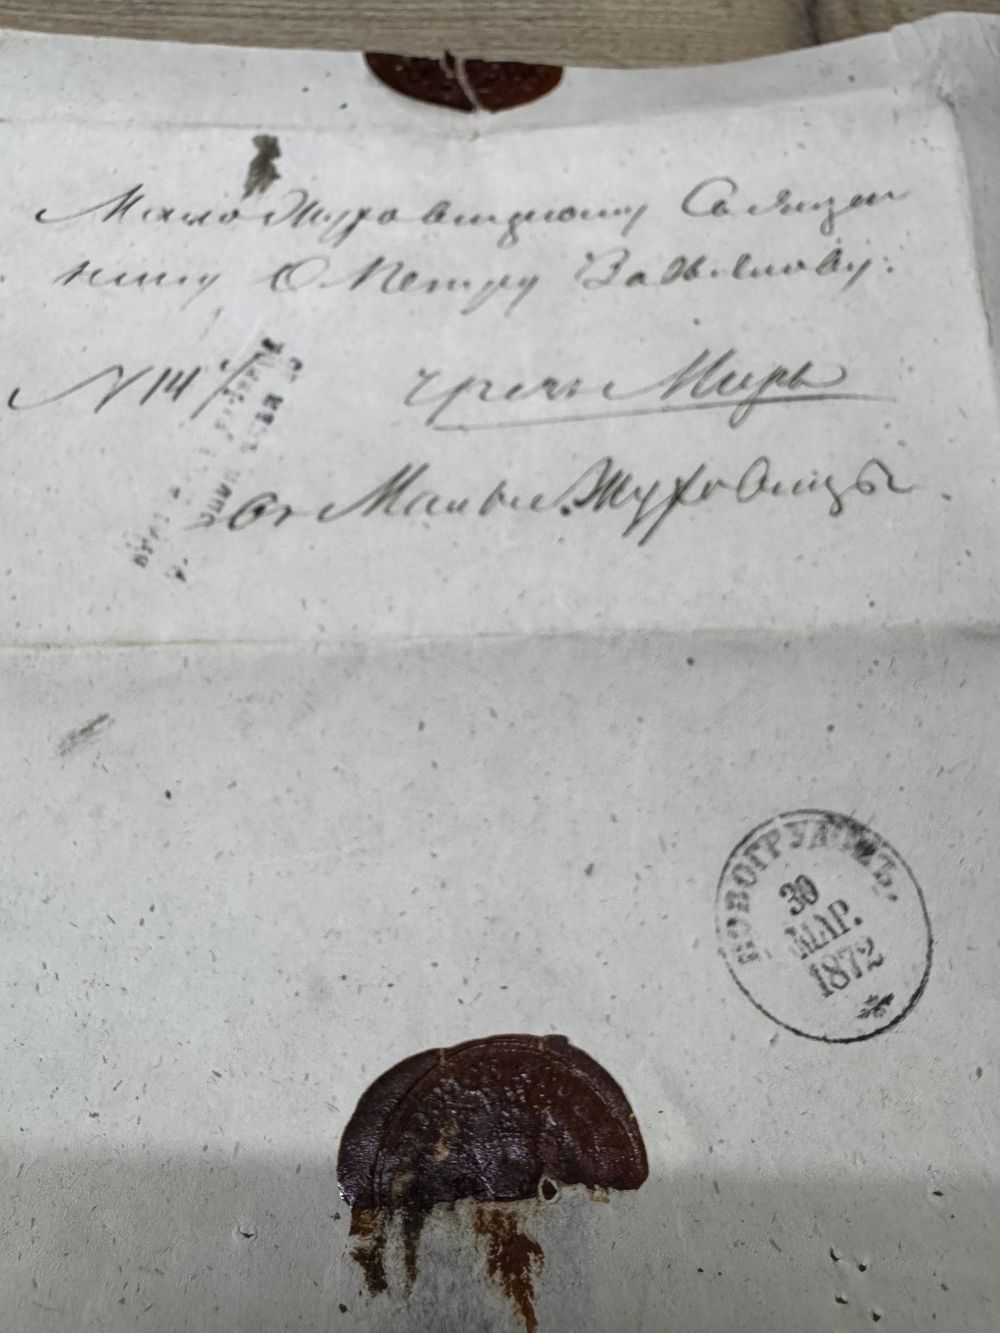 Мало Жуховицкому Священ
нику О Петру
№ 14
чрезъ Миръ
въ Малые Жуховицы
НОВОГРУДОКЪ,
30
МАР.
1872